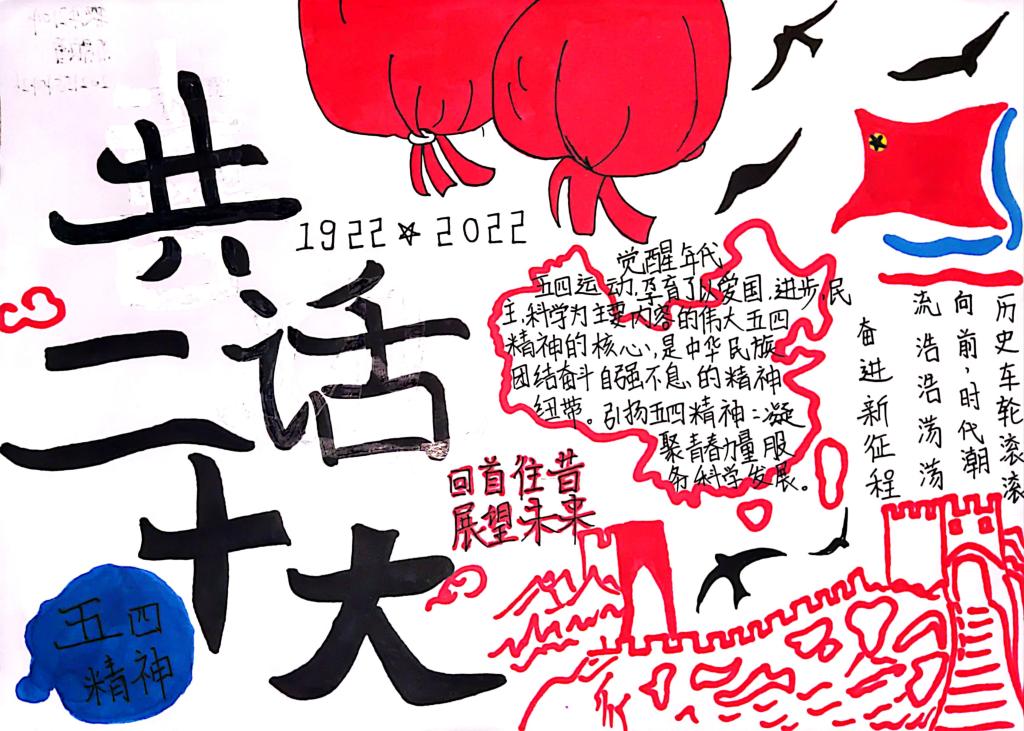 共话二十大
1922☆2022
觉醒年代
五四运动,孕育了以爱国,进步,民
主,科学为主要内容的伟大五四
精神的核心,是中华民族
团结奋斗自强不息的精神
纽带。引扬五四精神:凝
聚青春力量服
务科学发展。
历史车轮滚滚
向前,时代潮
流浩浩荡荡
奋进新征程
回首住昔
展望未来
五四
精神